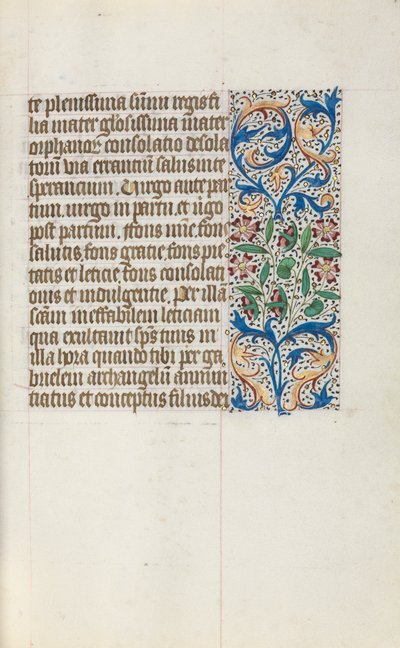 te plenissima sũmi regis fi
lia mater gl̃osissima mater
orphanoꝝ consolatio desola
torũ via errantiũ salus in te
sperancium. Uirgo ante par
tum. uirgo in partu. et uĩgo
post partum. ffons mĩe fons
salutis. fons gratie. fons pie
tatis et leticie. fons consolati
onis et indulgentie. Per illã
sc̃am ineffabilem leticiam
qua exultauit sp̃s tuus in
illa hora quando tibi per ga
brielem archangelũ annun
tiatus et conceptus filius dei